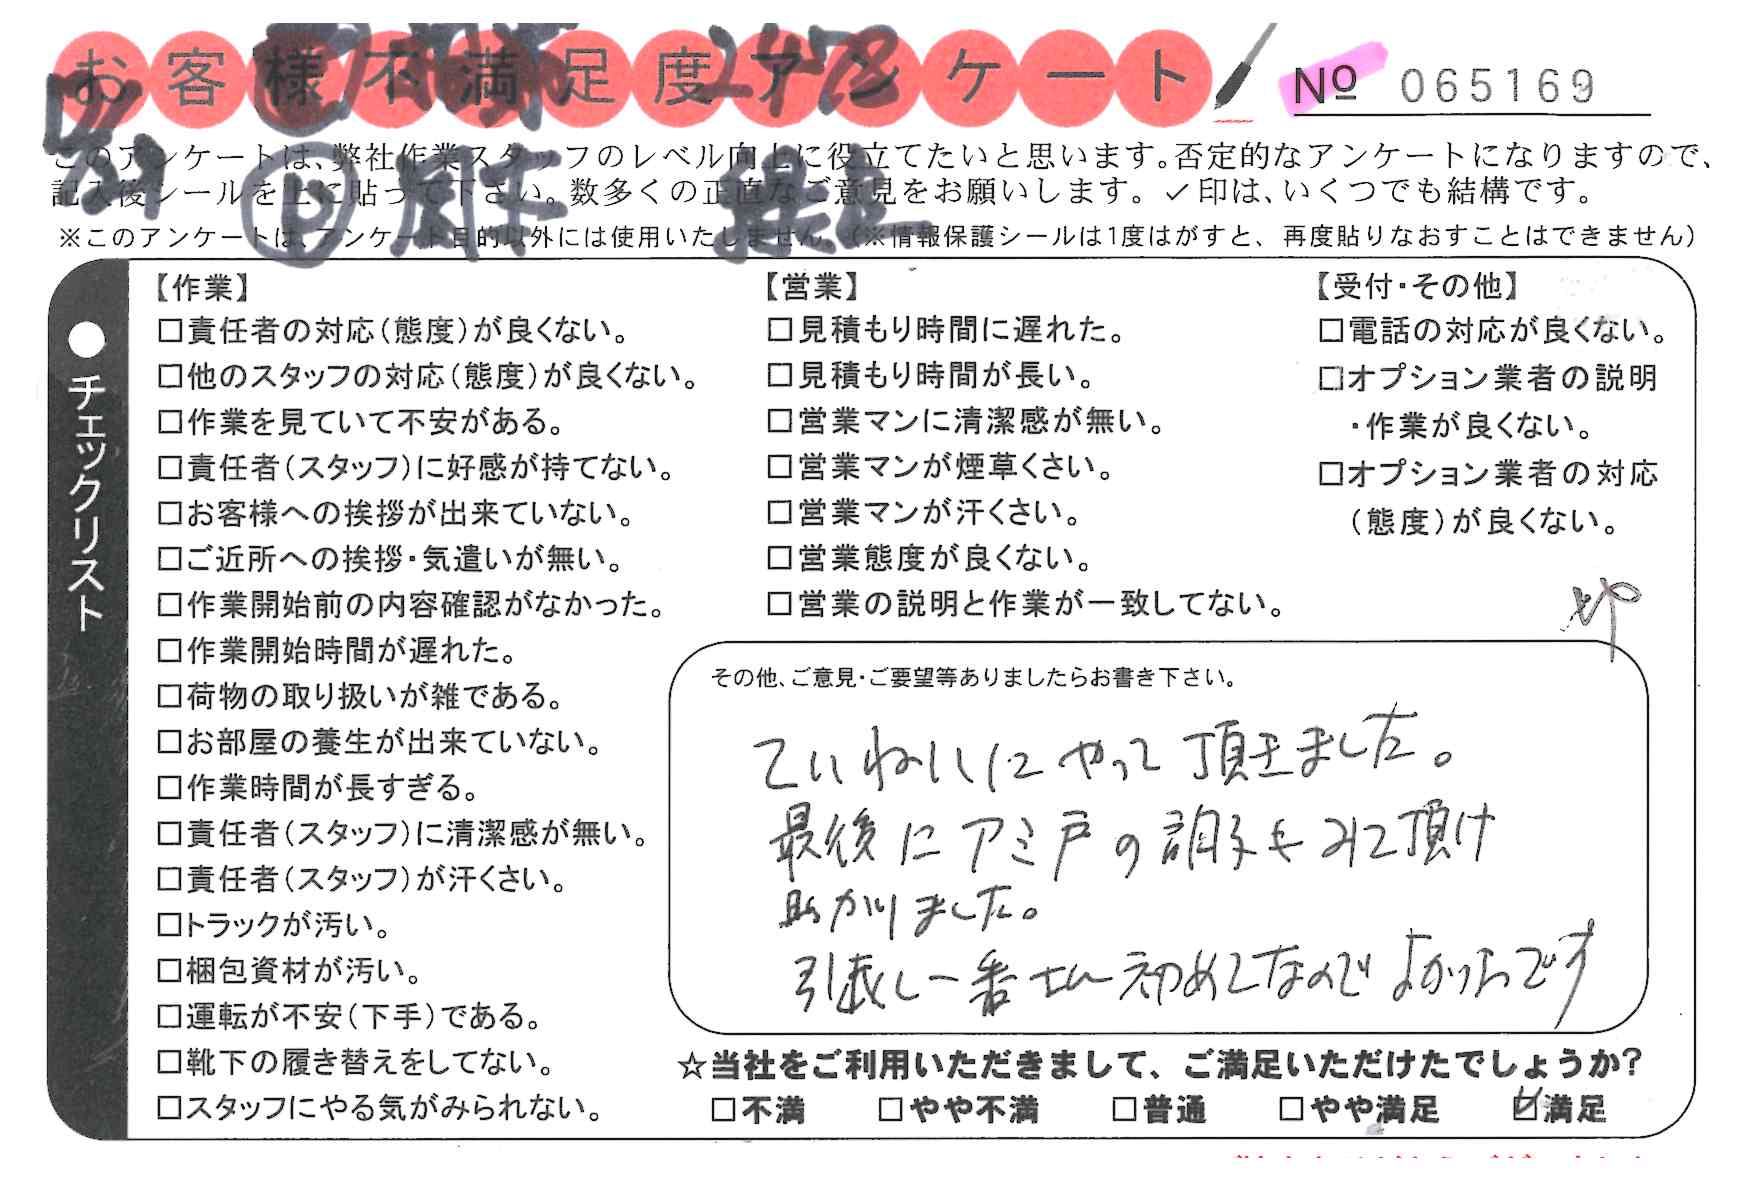 お客様不満足度アンケート
№ 065169
このアンケートは、弊社作業スタッフのレベル向上に役立てたいと思います。否定的なアンケートになりますので、
記入後シールを上に貼って下さい。数多くの正直なご意見をお願いします。✓印は、いくつでも結構です。
※このアンケートは、アンケート目的以外には使用いたしません。(※情報保護シールは1度はがすと、再度貼りなおすことはできません)
●チェックリスト
【作業】
□責任者の対応(態度)が良くない。
□他のスタッフの対応(態度)が良くない。
□作業を見ていて不安がある。
□責任者(スタッフ)に好感が持てない。
□お客様への挨拶が出来ていない。
□ご近所への挨拶・気遣いが無い。
□作業開始前の内容確認がなかった。
□作業開始時間が遅れた。
□荷物の取り扱いが雑である。
□お部屋の養生が出来ていない。
□作業時間が長すぎる。
□責任者(スタッフ)に清潔感が無い。
□責任者(スタッフ)が汗くさい。
□トラックが汚い。
□梱包資材が汚い。
□運転が不安(下手)である。
□靴下の履き替えをしてない。
□スタッフにやる気がみられない。
【営業】
□見積もり時間に遅れた。
□見積もり時間が長い。
□営業マンに清潔感が無い。
□営業マンが煙草くさい。
□営業マンが汗くさい。
□営業態度が良くない。
□営業の説明と作業が一致してない。
【受付・その他】
□電話の対応が良くない。
□オプション業者の説明
・作業が良くない。
□オプション業者の対応
(態度)が良くない。
その他、ご意見・ご要望等ありましたらお書き下さい。
ていねいにやって頂きました。
最後にアミ戸の調子もみて頂け
助かりました。
引越し一番さん初めてなのでよかったです
☆当社をご利用いただきまして、ご満足いただけたでしょうか?
□不満 □やや不満 □普通 □やや満足 ☑満足